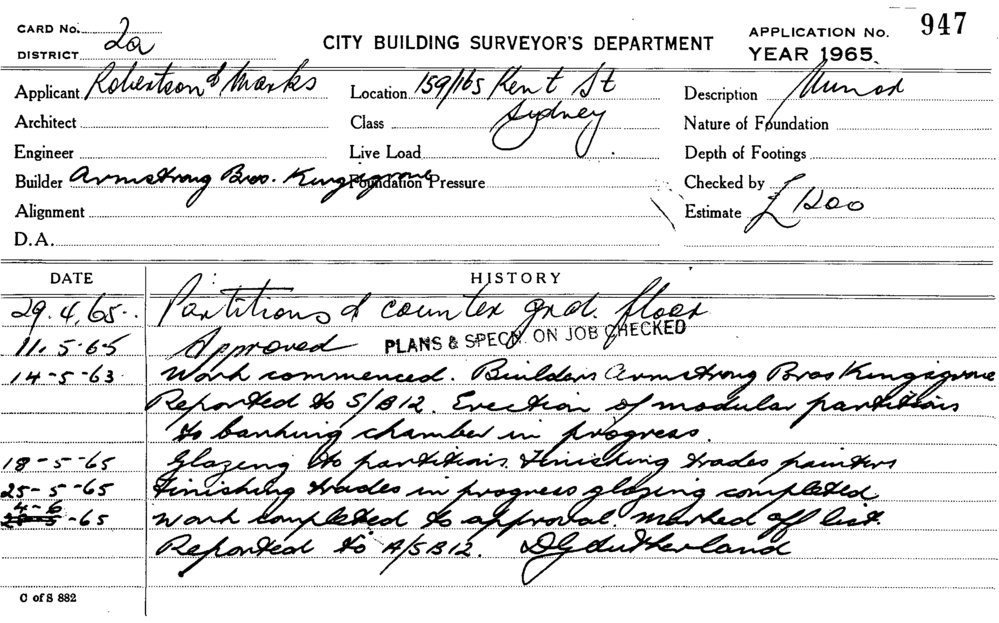 CARD No. 2a
DISTRICT
CITY BUILDING SURVEYOR'S DEPARTMENT
APPLICATION No. 947
YEAR 1965.
Applicant Robertson & Marks Location 159/165 Kent St Description Minor
Architect Class Sydney Nature of Foundation
Engineer Live Load Depth of Footings
Builder Armstrong Bros. Kingsgrove Foundation Pressure Checked by
Alignment Estimate £1200
D.A.
DATE HISTORY
29.4.65. Partitions & counter grd. floor
11.5.65 Approved PLANS & SPECN. ON JOB CHECKED
14-5-63 Work commenced. Builders Armstrong Bros Kingsgrove
Reported to S/B12. Erection of modular partitions
to banking chamber in progress.
18-5-65 Glazing to partitions. Finishing trades painters
25-5-65 Finishing trades in progress glazing completed
4-6-65 Work completed to approval. Marked off list.
Reported to A/SB12. DGSutherland
C of S 882